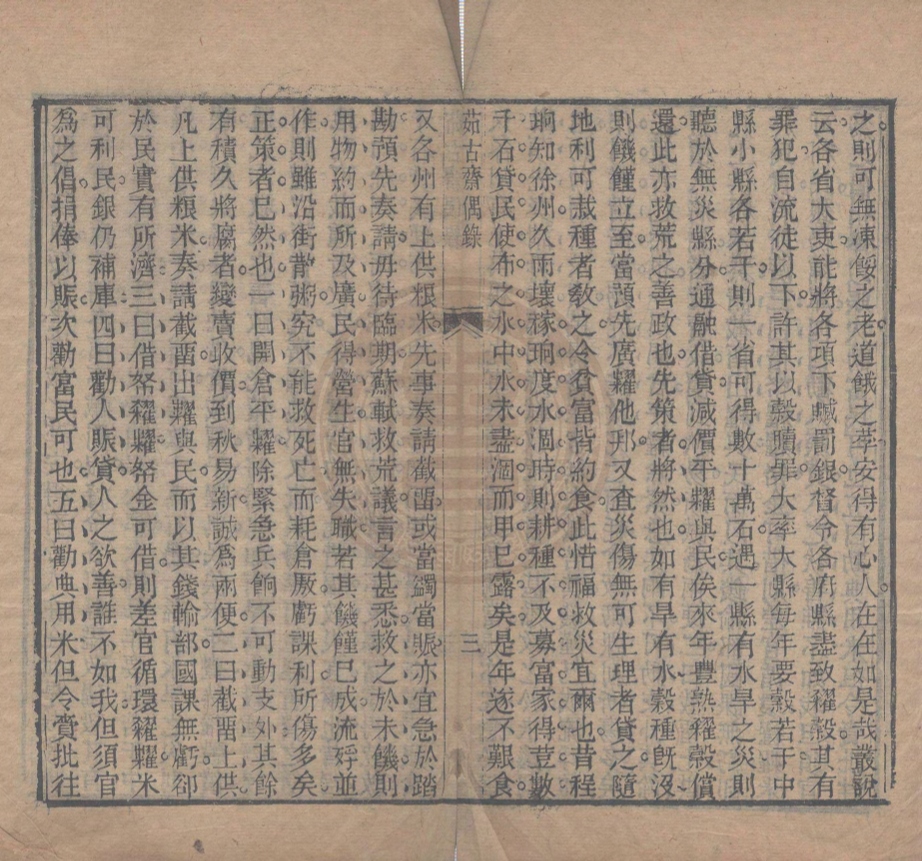 之則可無凍餒之老道餓之莩安得有心人在在如是哉叢說
云各省大吏能將各項下贓罰銀督令各府縣盡致糴穀其有
罪犯自流徒以下許其以穀贖罪大率大縣每年要穀若干中
縣小縣各若干則一省可得數十萬石遇一縣有水旱之災則
聽於無災縣分通融借貸減價平糶與民俟來年豐熟糴穀償
還此亦救荒之善政也先策者將然也如有旱有水穀種旣沒
則饑饉立至當預先廣糴他邦又查災傷無可生理者貸之隨
地利可栽種者敎之令貧富皆約食此惜福救災宜爾也昔程
珦知徐州久雨壞稼珦度水涸時則耕種不及募富家得荳數
千石貸民使布之水中水未盡涸而甲巳露矣是年遂不艱食
茹古齋偶錄
三
又各州有上供粮米先事奏請截畱或當蠲當賑亦宜急於踏
勘預先奏請毋待臨期蘇軾救荒議言之甚悉救之於未饑則
用物約而所及廣民得營生官無失職若其饑饉巳成流殍並
作則雖沿街散粥究不能救死亡而耗倉厫虧課利所傷多矣
正策者巳然也一曰開倉平糶除緊急兵餉不可動支外其餘
有積久將腐者變賣收價到秋易新誠爲兩便二曰截畱上供
凡上供粮米奏請截畱出糶與民而以其錢輸部國課無虧卻
於民實有所濟三曰借帑糴糶帑金可借則差官循環糴糶米
可利民銀仍補庫四曰勸人賑貸人之欲善誰不如我但須官
爲之倡捐俸以賑次勸富民可也五曰勸典用米但令賫批往